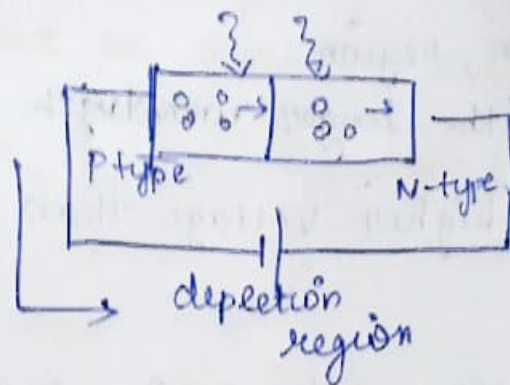 P type
N-type
depletion
region